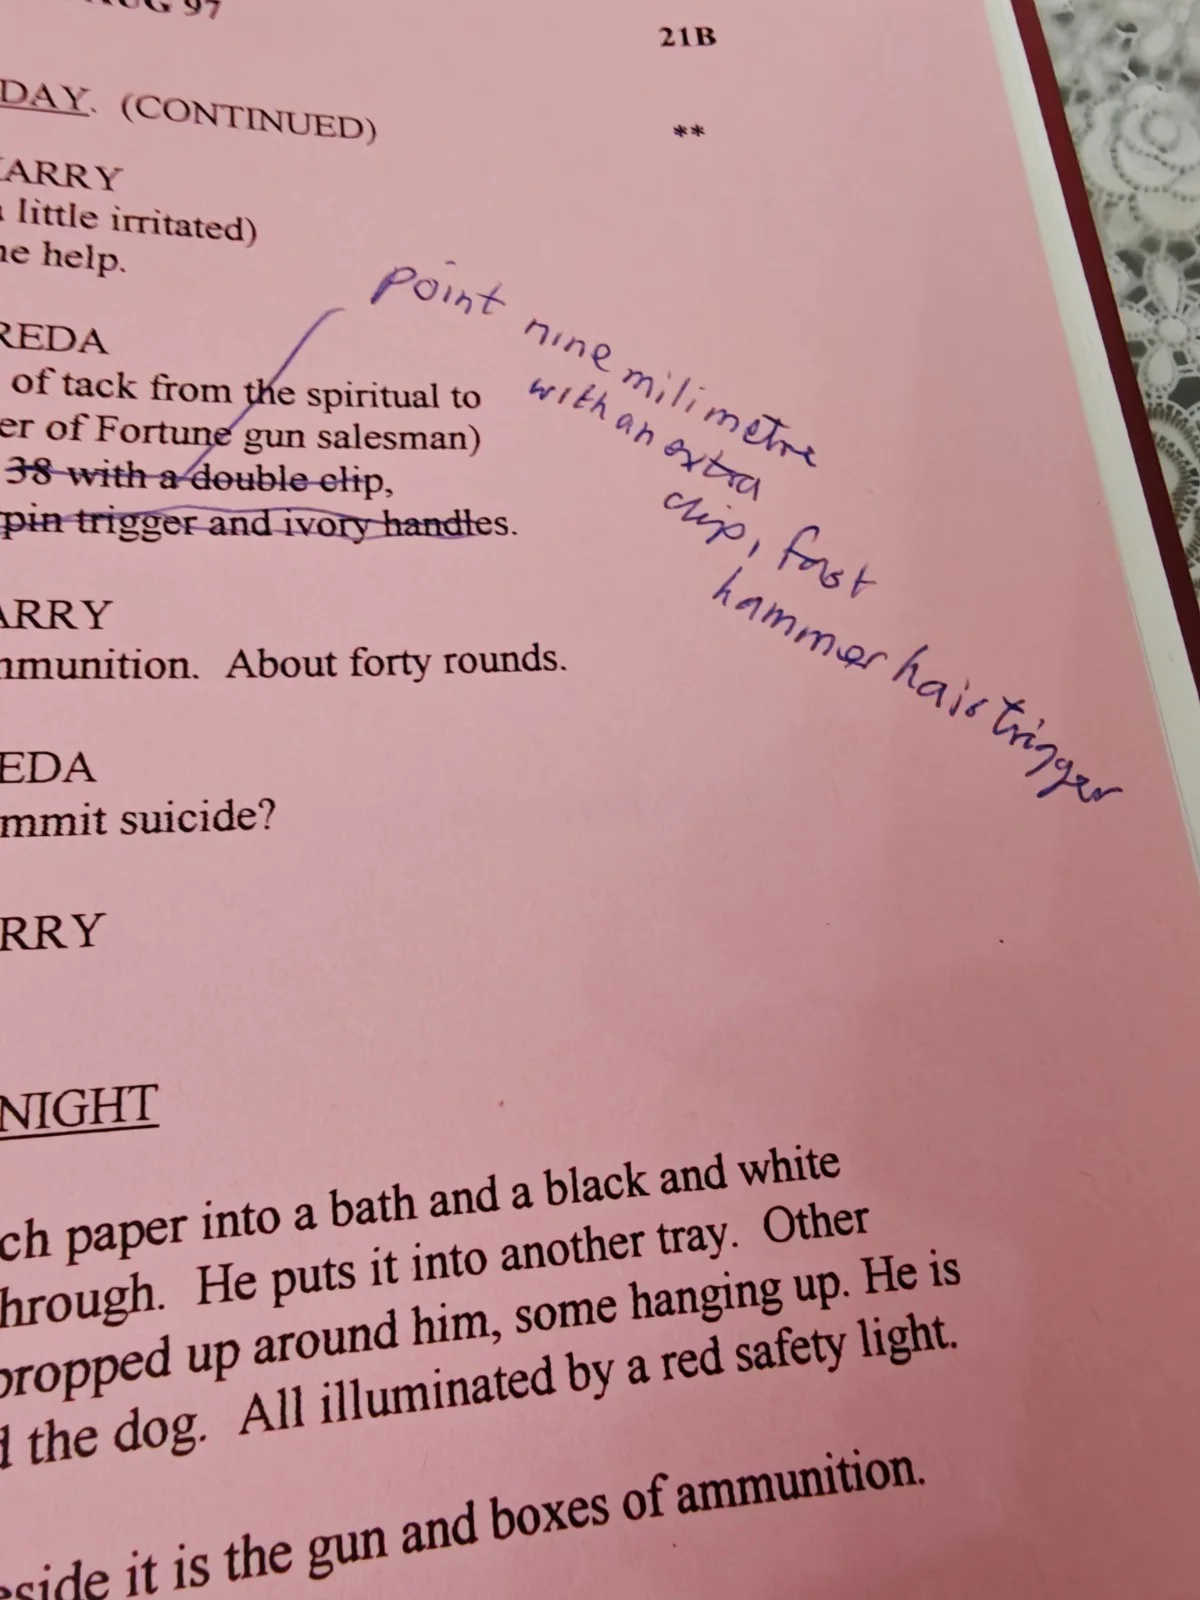 AUG 97
21B
DAY. (CONTINUED)
**
ARRY
little irritated)
help.
REDA
of tack from the spiritual to
er of Fortune gun salesman)
38 with a double clip,
pin trigger and ivory handles.
point nine milimetre
with an extra
clip, fast
hammer hair trigger
ARRY
mmunition. About forty rounds.
EDA
mmit suicide?
RRY
NIGHT
ch paper into a bath and a black and white
hrough. He puts it into another tray. Other
propped up around him, some hanging up. He is
the dog. All illuminated by a red safety light.
eside it is the gun and boxes of ammunition.